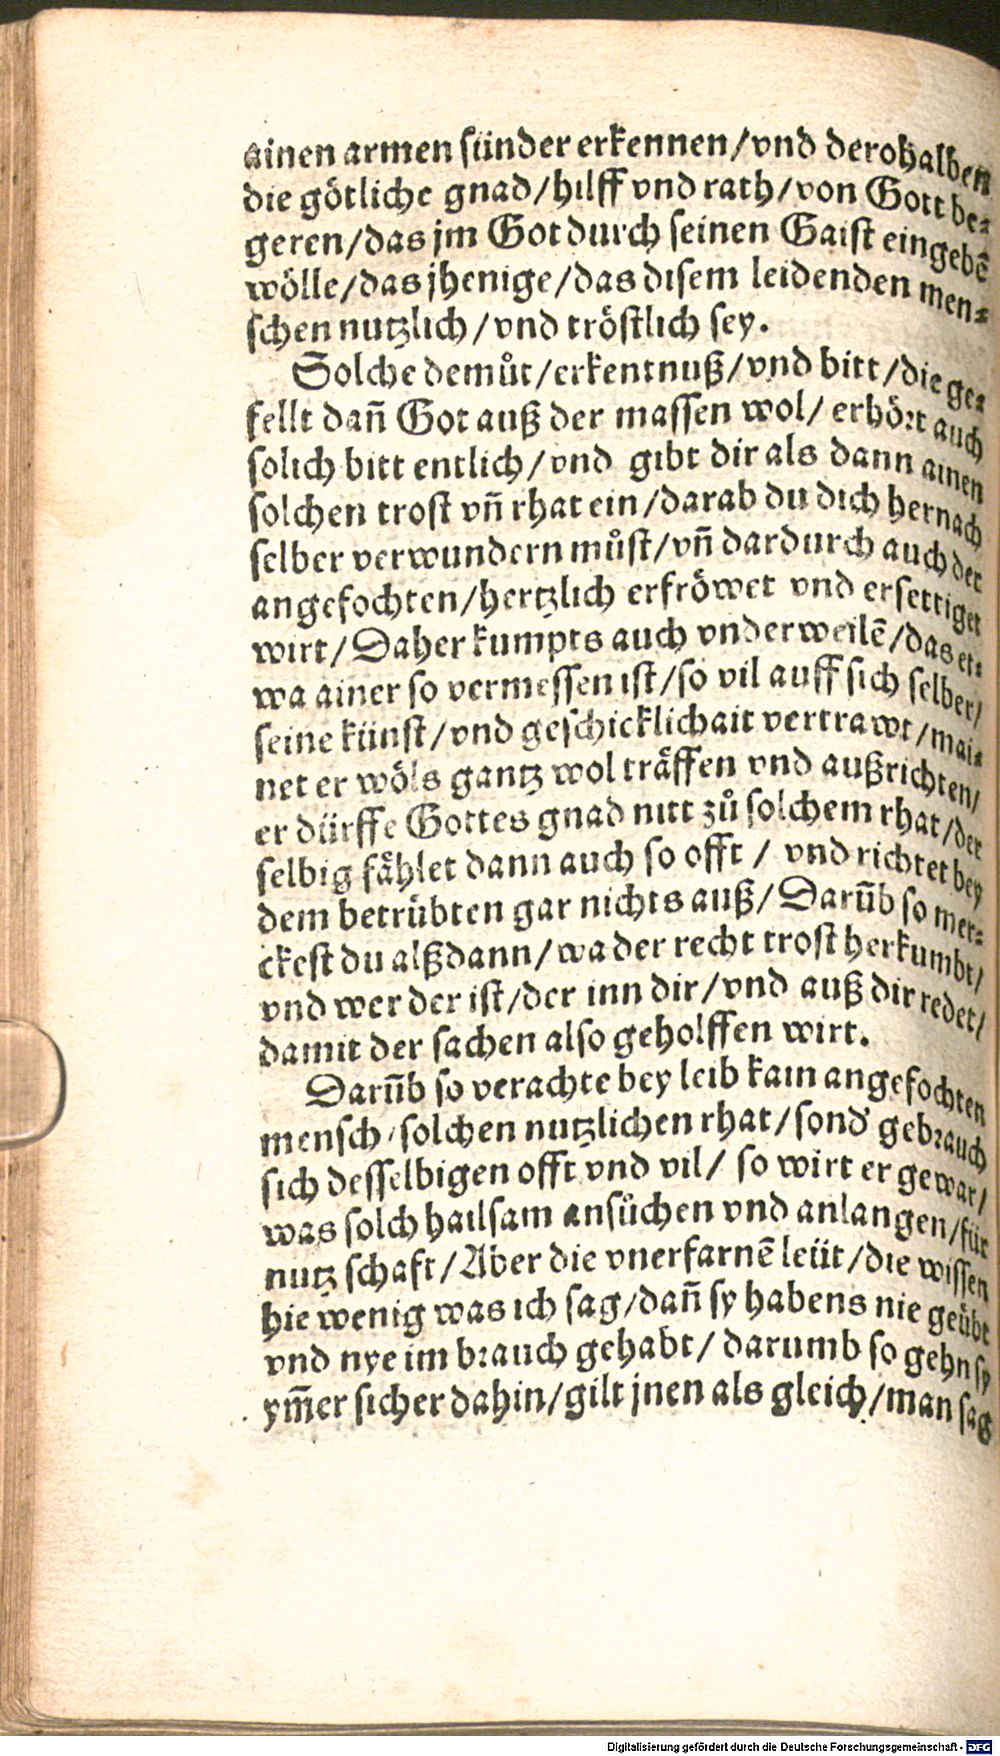 ainen armen sünder erkennen/vnd derohalben
die götliche gnad/hilff vnd rath/von Gott be⸗
geren/das jm Got durch seinen Gaist eingebē
wölle/das jhenige/das disem leidenden men⸗
schen nutzlich/vnd tröstlich sey.
Solche demůt/erkentnuß/vnd bitt/die ge⸗
fellt dañ Got auß der massen wol/ erhört auch
solich bitt entlich/vnd gibt dir als dann ainen
solchen trost vñ rhat ein/darab du dich hernach
selber verwundern můst/vñ dardurch auch der
angefochten/hertzlich erfröwet vnd ersettiget
wirt/Daher kumpts auch vnderweilē/das et⸗
wa ainer so vermessen ist/so vil auff sich selber/
seine künst/vnd geschicklichait vertrawt/mai⸗
net er wöls gantz wol träffen vnd außrichten/
er dürffe Gottes gnad nitt zů solchem rhat/der
selbig fählet dann auch so offt / vnd richtet bey
dem betrübten gar nichts auß/Darūb so mer⸗
ckest du alßdann/wa der recht trost herkumbt/
vnd wer der ist/der inn dir/vnd auß dir redet/
damit der sachen also geholffen wirt.
Darūb so verachte bey leib kain angefochten
mensch/solchen nutzlichen rhat/sond' gebrauch
sich desselbigen offt vnd vil/ so wirt er gewar/
was solch hailsam ansůchen vnd anlangen/für
nutz schaft/Aber die vnerfarnē leüt/die wissen
hie wenig was ich sag/dañ sy habens nie geübt
vnd nye im brauch gehabt/ darumb so gehn sy
ym̄er sicher dahin/gilt jnen als gleich/man sag
Digitalisierung gefördert durch die Deutsche Forschungsgemeinschaft - DFG